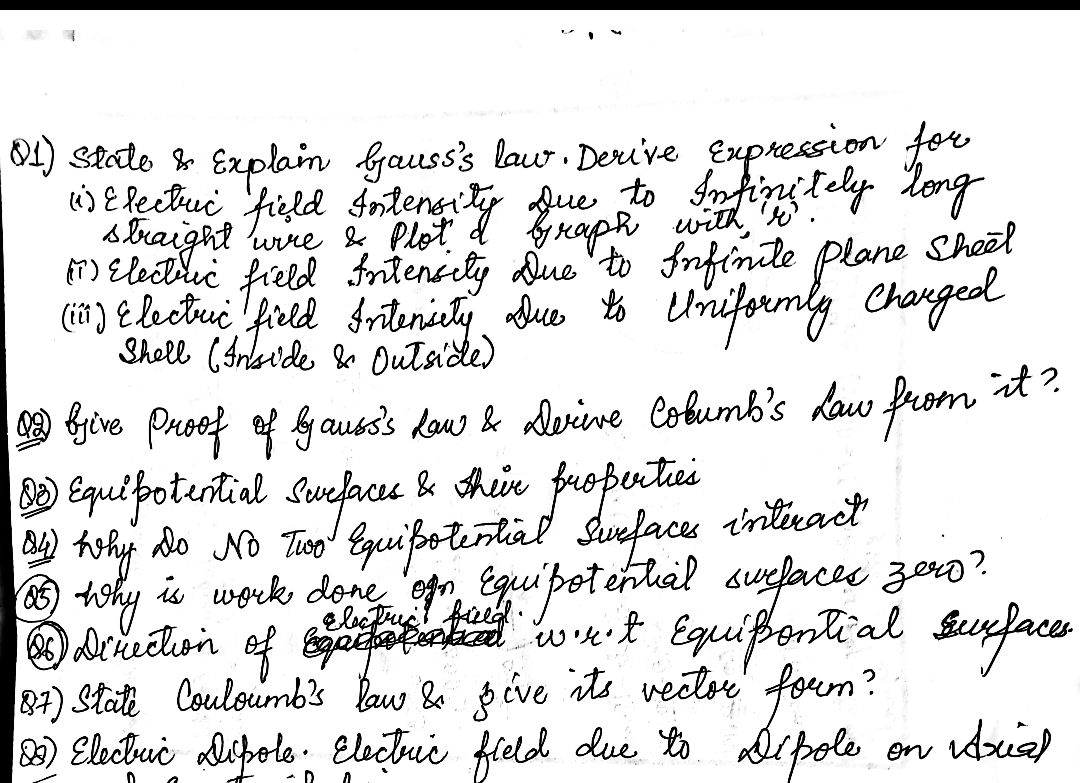 Q1) State & Explain Gauss's law. Derive Expression for
(i) Electric field Intensity Due to Infinitely long
straight wire & Plot a Graph with 'r'.
(ii) Electric field Intensity Due to Infinite plane Sheet
(iii) Electric field Intensity Due to Uniformly Charged
Shell (Inside & Outside)
Q2) Give Proof of Gauss's Law & Derive Columb's Law from it?
Q3) Equipotential Surfaces & their properties
Q4) Why Do No Two Equipotential Surfaces interact
Q5) Why is work done on Equipotential surfaces zero?
Q6) Direction of electric field w.r.t Equipontial Surfaces
Q7) State Couloumb's law & give its vector form?
Q8) Electric Dipole. Electric field due to Dipole on Axial